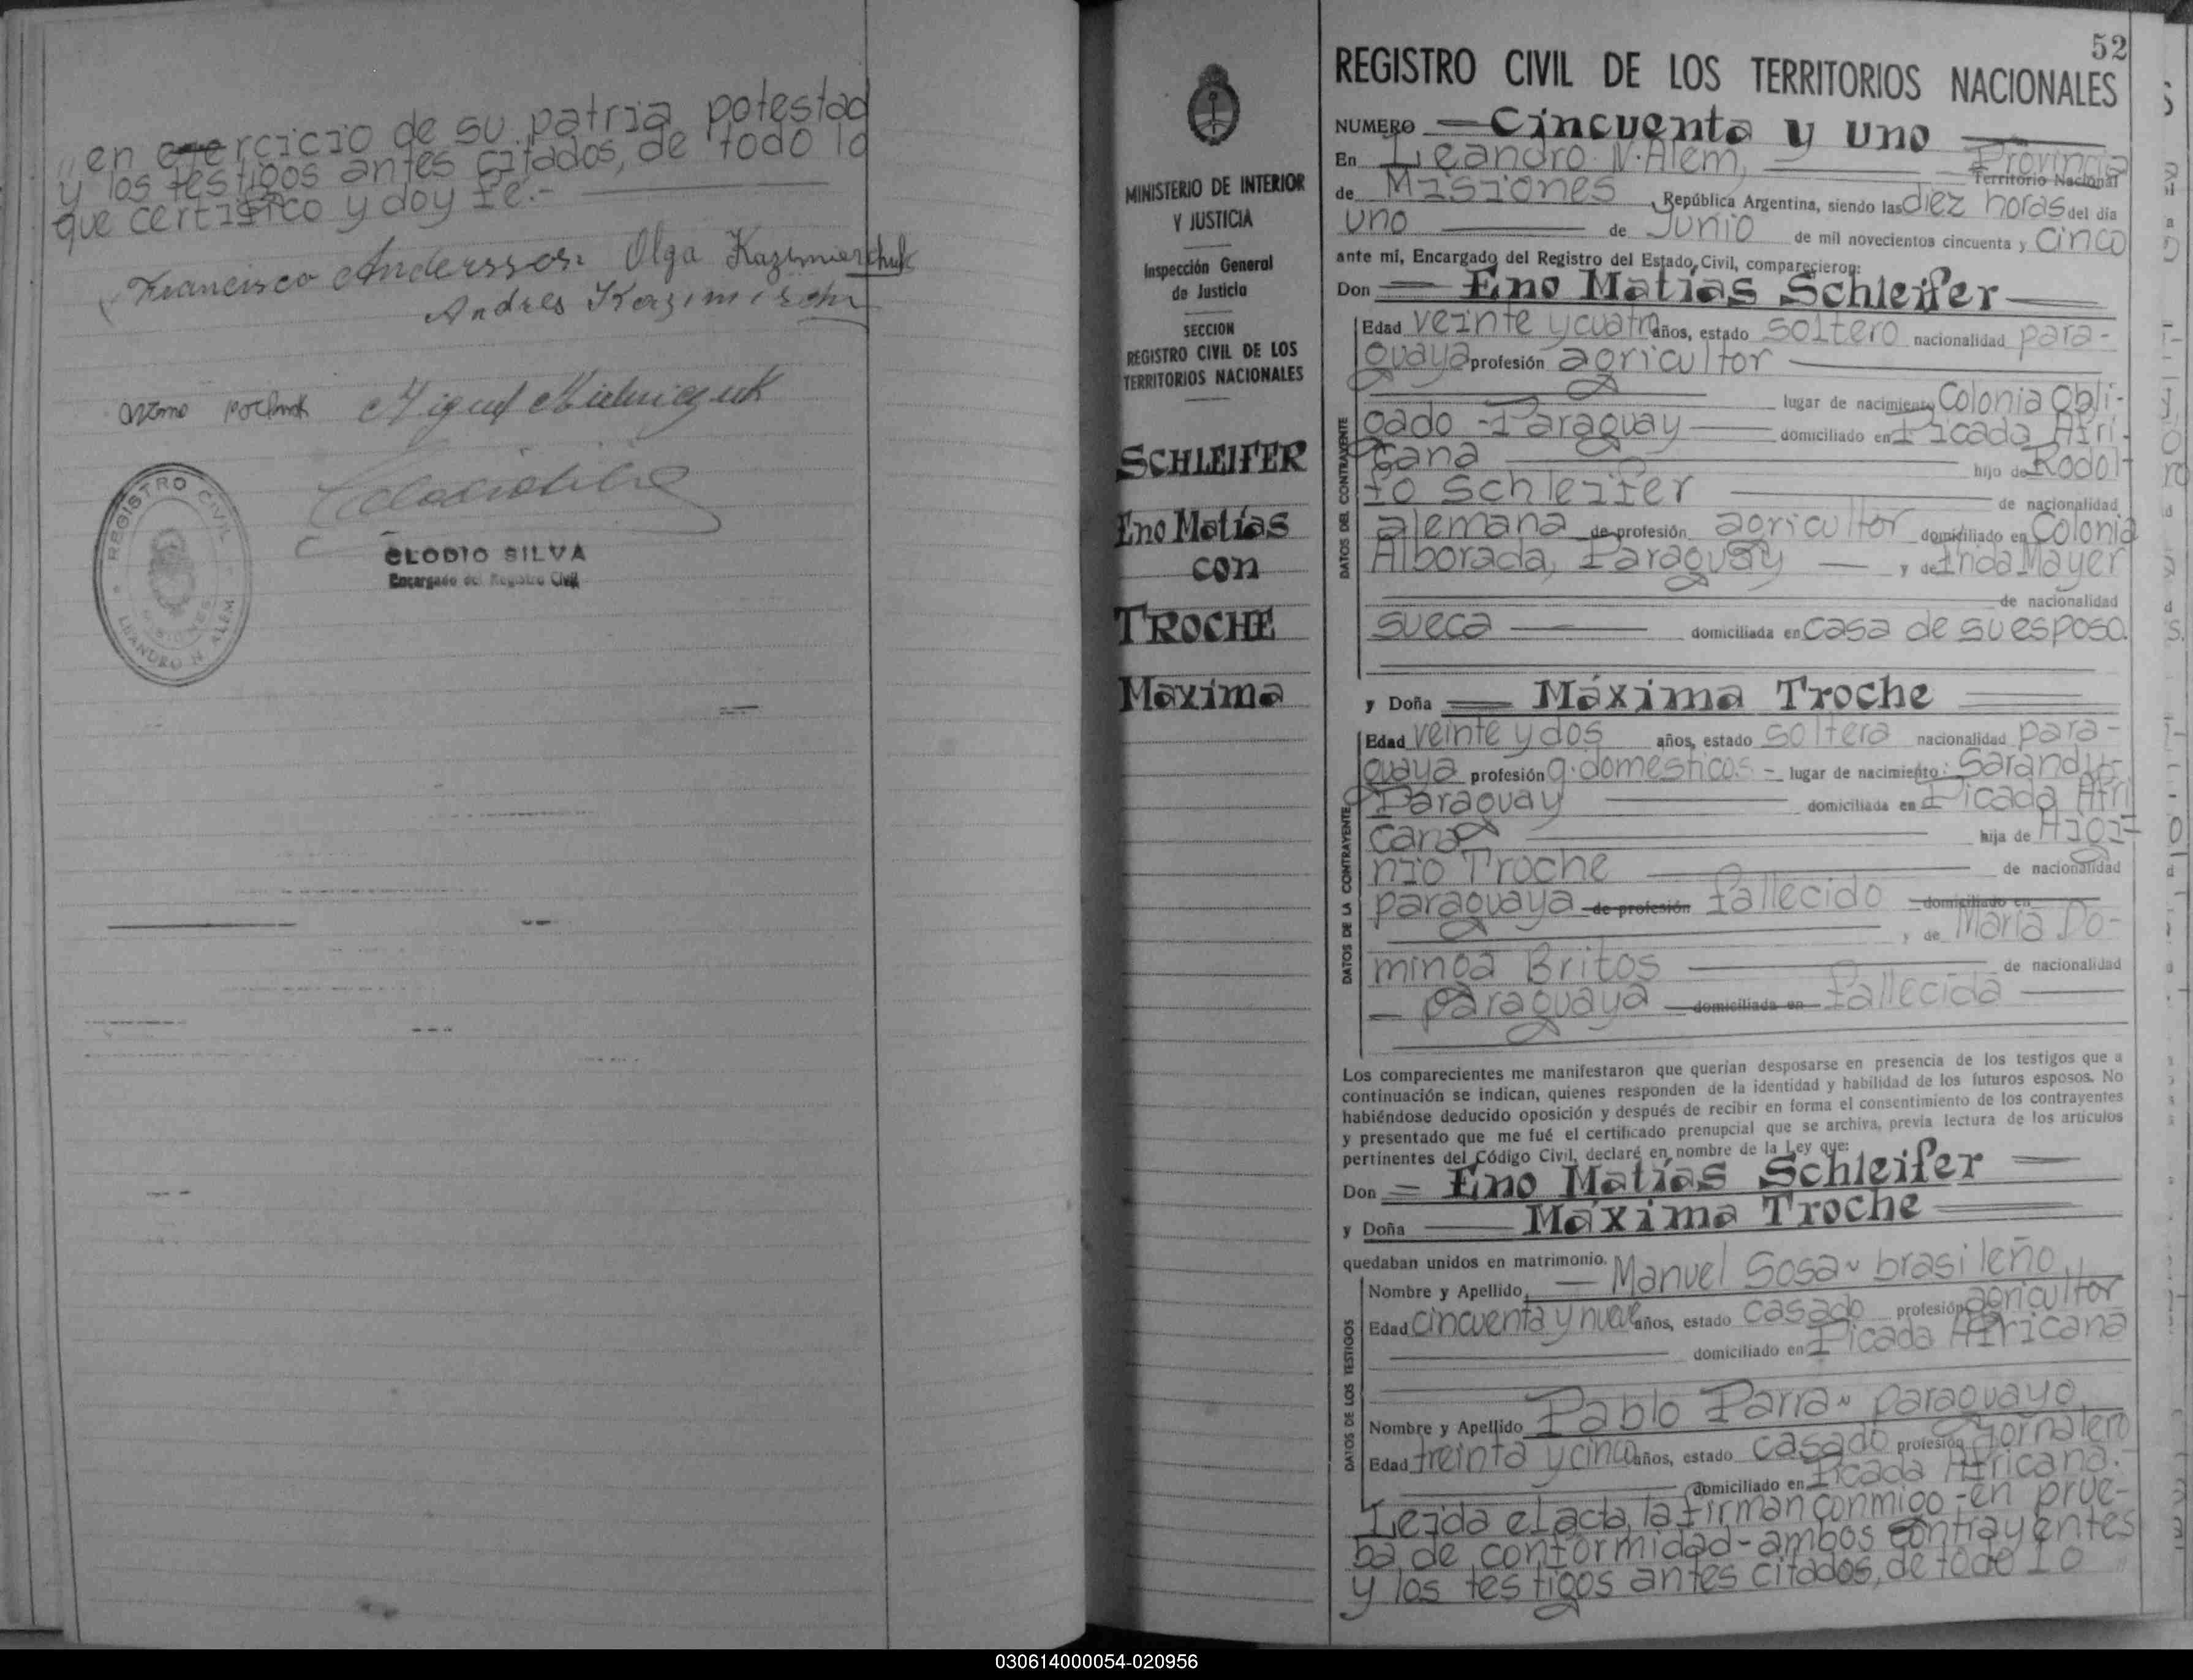 en ejercicio de su patria potestad
y los testigos antes citados, de todo lo
que certifico y doy fe.-
Francisco Anderssos. Olga Kazimierchuk
Andres Kazimierchu
Miguel Mielniczuk
REGISTRO CIVIL
MISIONES
LEANDRO N. ALEM
ELODIO SILVA
Encargado del Registro Civil
MINISTERIO DE INTERIOR
Y JUSTICIA
Inspección General
de Justicia
SECCION
REGISTRO CIVIL DE LOS
TERRITORIOS NACIONALES
SCHLEIFER
Eno Matías
con
TROCHE
Maxima
52
REGISTRO CIVIL DE LOS TERRITORIOS NACIONALES
NUMERO Cincuenta y uno
En Leandro N. Alem, Provincia
Territorio Nacional
de Misiones, República Argentina, siendo las diez horas del día
uno de Junio de mil novecientos cincuenta y cinco
ante mí, Encargado del Registro del Estado Civil, comparecieron:
Don Eno Matías Schleifer
Edad veinte y cuatro años, estado soltero nacionalidad para-
guaya profesión agricultor
lugar de nacimiento Colonia Obli-
gado - Paraguay domiciliado en Picada Afri-
cana hijo de Rodol-
fo Schleifer de nacionalidad
alemana de profesión agricultor domiciliado en Colonia
Alborada, Paraguay y de Frida Mayer
de nacionalidad
sueca domiciliada en casa de su esposo.
DATOS DEL CONTRAYENTE
y Doña Máxima Troche
Edad veinte y dos años, estado soltera nacionalidad para-
guaya profesión q. domesticos - lugar de nacimiento: Sarandy-
Paraguay domiciliada en Picada Afri
cana hija de Higi-
nio Troche de nacionalidad
paraguaya de profesión fallecido domiciliado en
y de María Do-
minga Britos de nacionalidad
paraguaya domiciliada en fallecida
DATOS DE LA CONTRAYENTE
Los comparecientes me manifestaron que querían desposarse en presencia de los testigos que a
continuación se indican, quienes responden de la identidad y habilidad de los futuros esposos. No
habiéndose deducido oposición y después de recibir en forma el consentimiento de los contrayentes
y presentado que me fué el certificado prenupcial que se archiva, previa lectura de los artículos
pertinentes del Código Civil, declaré en nombre de la Ley que:
Don Eno Matías Schleifer
y Doña Máxima Troche
quedaban unidos en matrimonio.
Nombre y Apellido, Manuel Sosa brasileño
Edad cincuenta y nueve años, estado casado profesión agricultor
domiciliado en Picada Africana
Nombre y Apellido Pablo Parra paraguayo
Edad treinta y cinco años, estado casado profesión jornalero
domiciliado en Picada Africana.
DATOS DE LOS TESTIGOS
Leida el acta, la firman conmigo - en prue-
ba de conformidad - ambos contrayentes
y los testigos antes citados, de todo lo
030614000054-020956